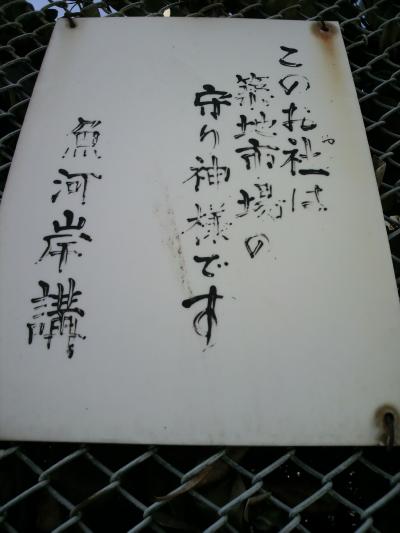 このお社は
築地市場の
守り神様です
魚河岸講